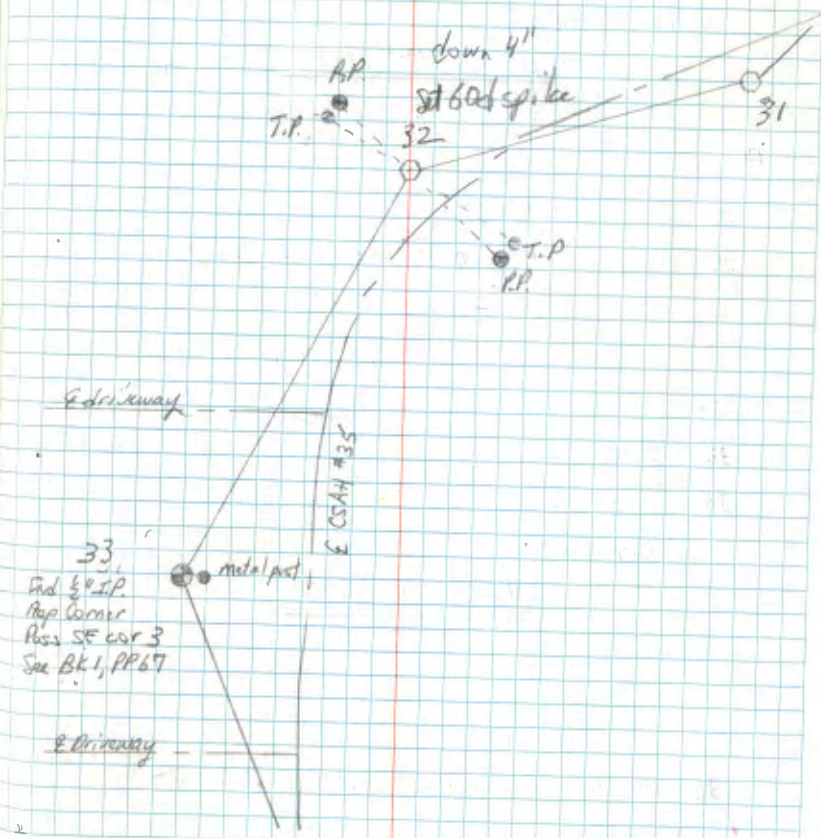 down 4"
Set 60d spike
P.P.
T.P.
32
31
T.P
P.P.
℄ driveway
℄ CSAH #35
33
metal post
Fnd ½" I.P.
Prop Corner
Poss SE cor 3
See BK 1, PP 67
℄ Driveway